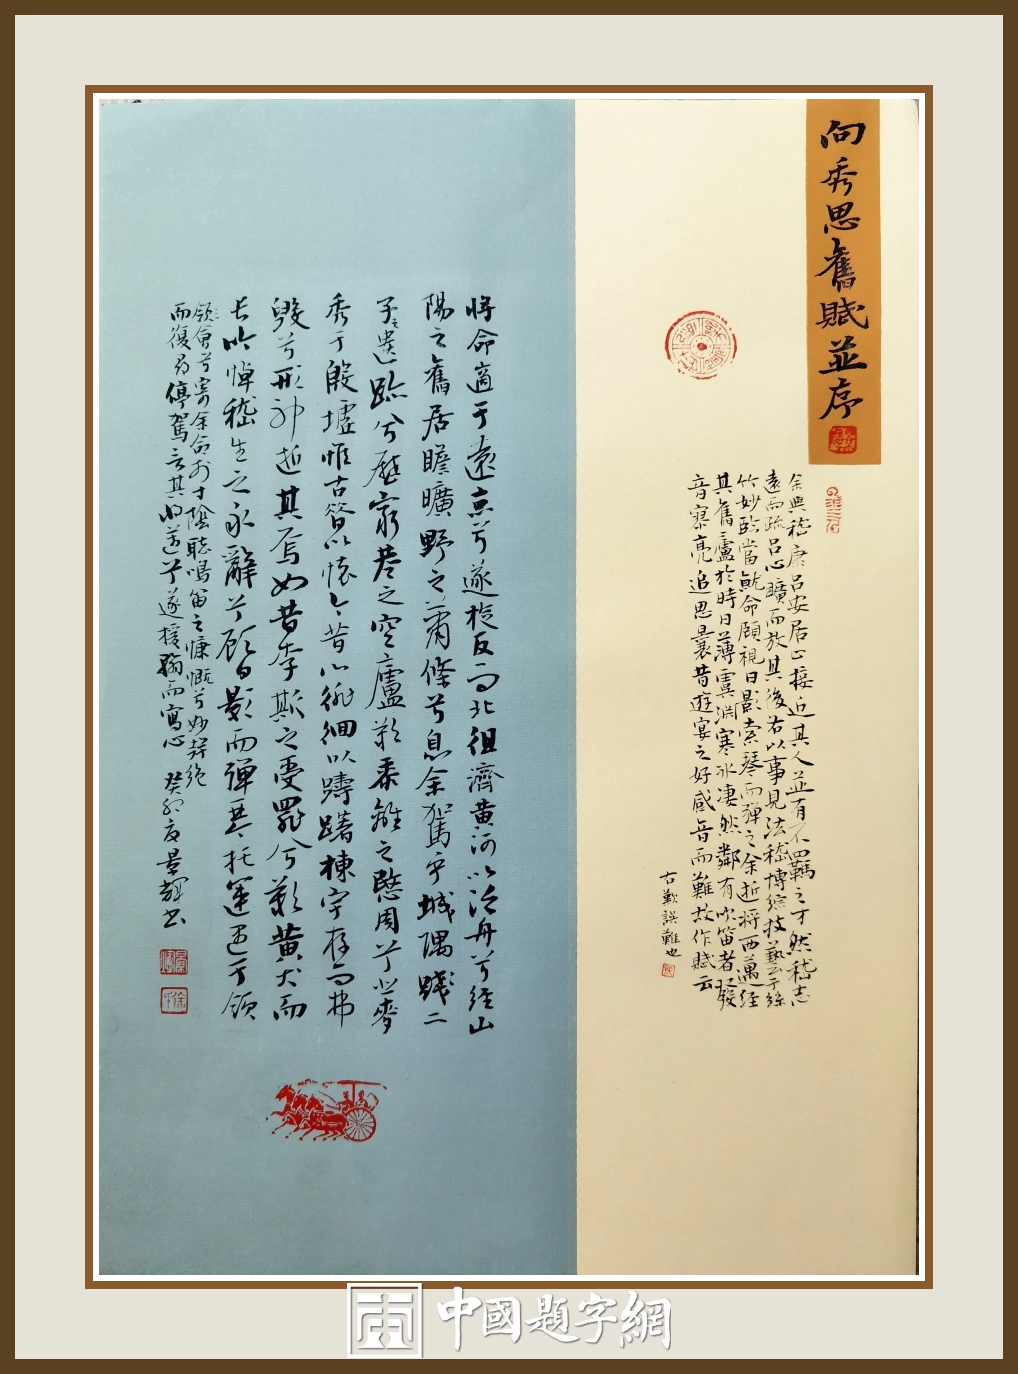 向秀思舊賦並序
余與嵇康呂安居止接近其人並有不羈之才然嵇志
遠而疏呂心曠而放其後各以事見法嵇博綜技藝於絲
竹妙臨當就命顧視日影索琴而彈之余逝將西邁經
其舊廬於時日薄虞淵寒冰凄然鄰有吹笛者發
音寥亮追思曩昔遊宴之好感音而難故作賦云
古歎誤難也
將命適于遠京兮遂旋反而北徂濟黃河以泛舟兮經山
陽之舊居瞻曠野之蕭條兮息余駕乎城隅踐二
子遺跡兮歷窮巷之空廬歎黍離之愍周兮悲麥
秀于殷墟惟古昔以懷今昔心徘徊以躊躇棟宇存而弗
毀兮形神逝其焉如昔李斯之受罪兮歎黃犬而
長吟悼嵇生之永辭兮顧日影而彈琴托運遇于領
領會兮寄余命於寸陰聽鳴笛之慷慨兮妙聲絕
而復尋停駕言其將邁兮遂援翰而寫心 癸卯夏景輝書
中國題字網